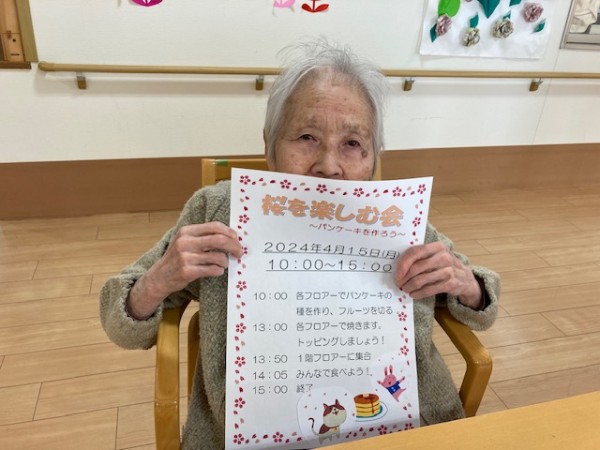 桜を楽しむ会
～パンケーキを作ろう～
2024年4月15日(月)
10:00～15:00
10:00 各フロアーでパンケーキの
種を作り、フルーツを切る
13:00 各フロアーで焼きます。
トッピングしましょう！
13:50 1階フロアーに集合
14:05 みんなで食べよう！
15:00 終了